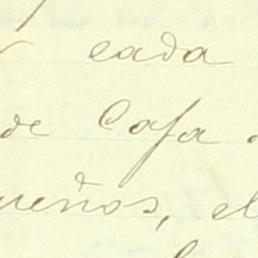 cada
de Casa
ueños, el